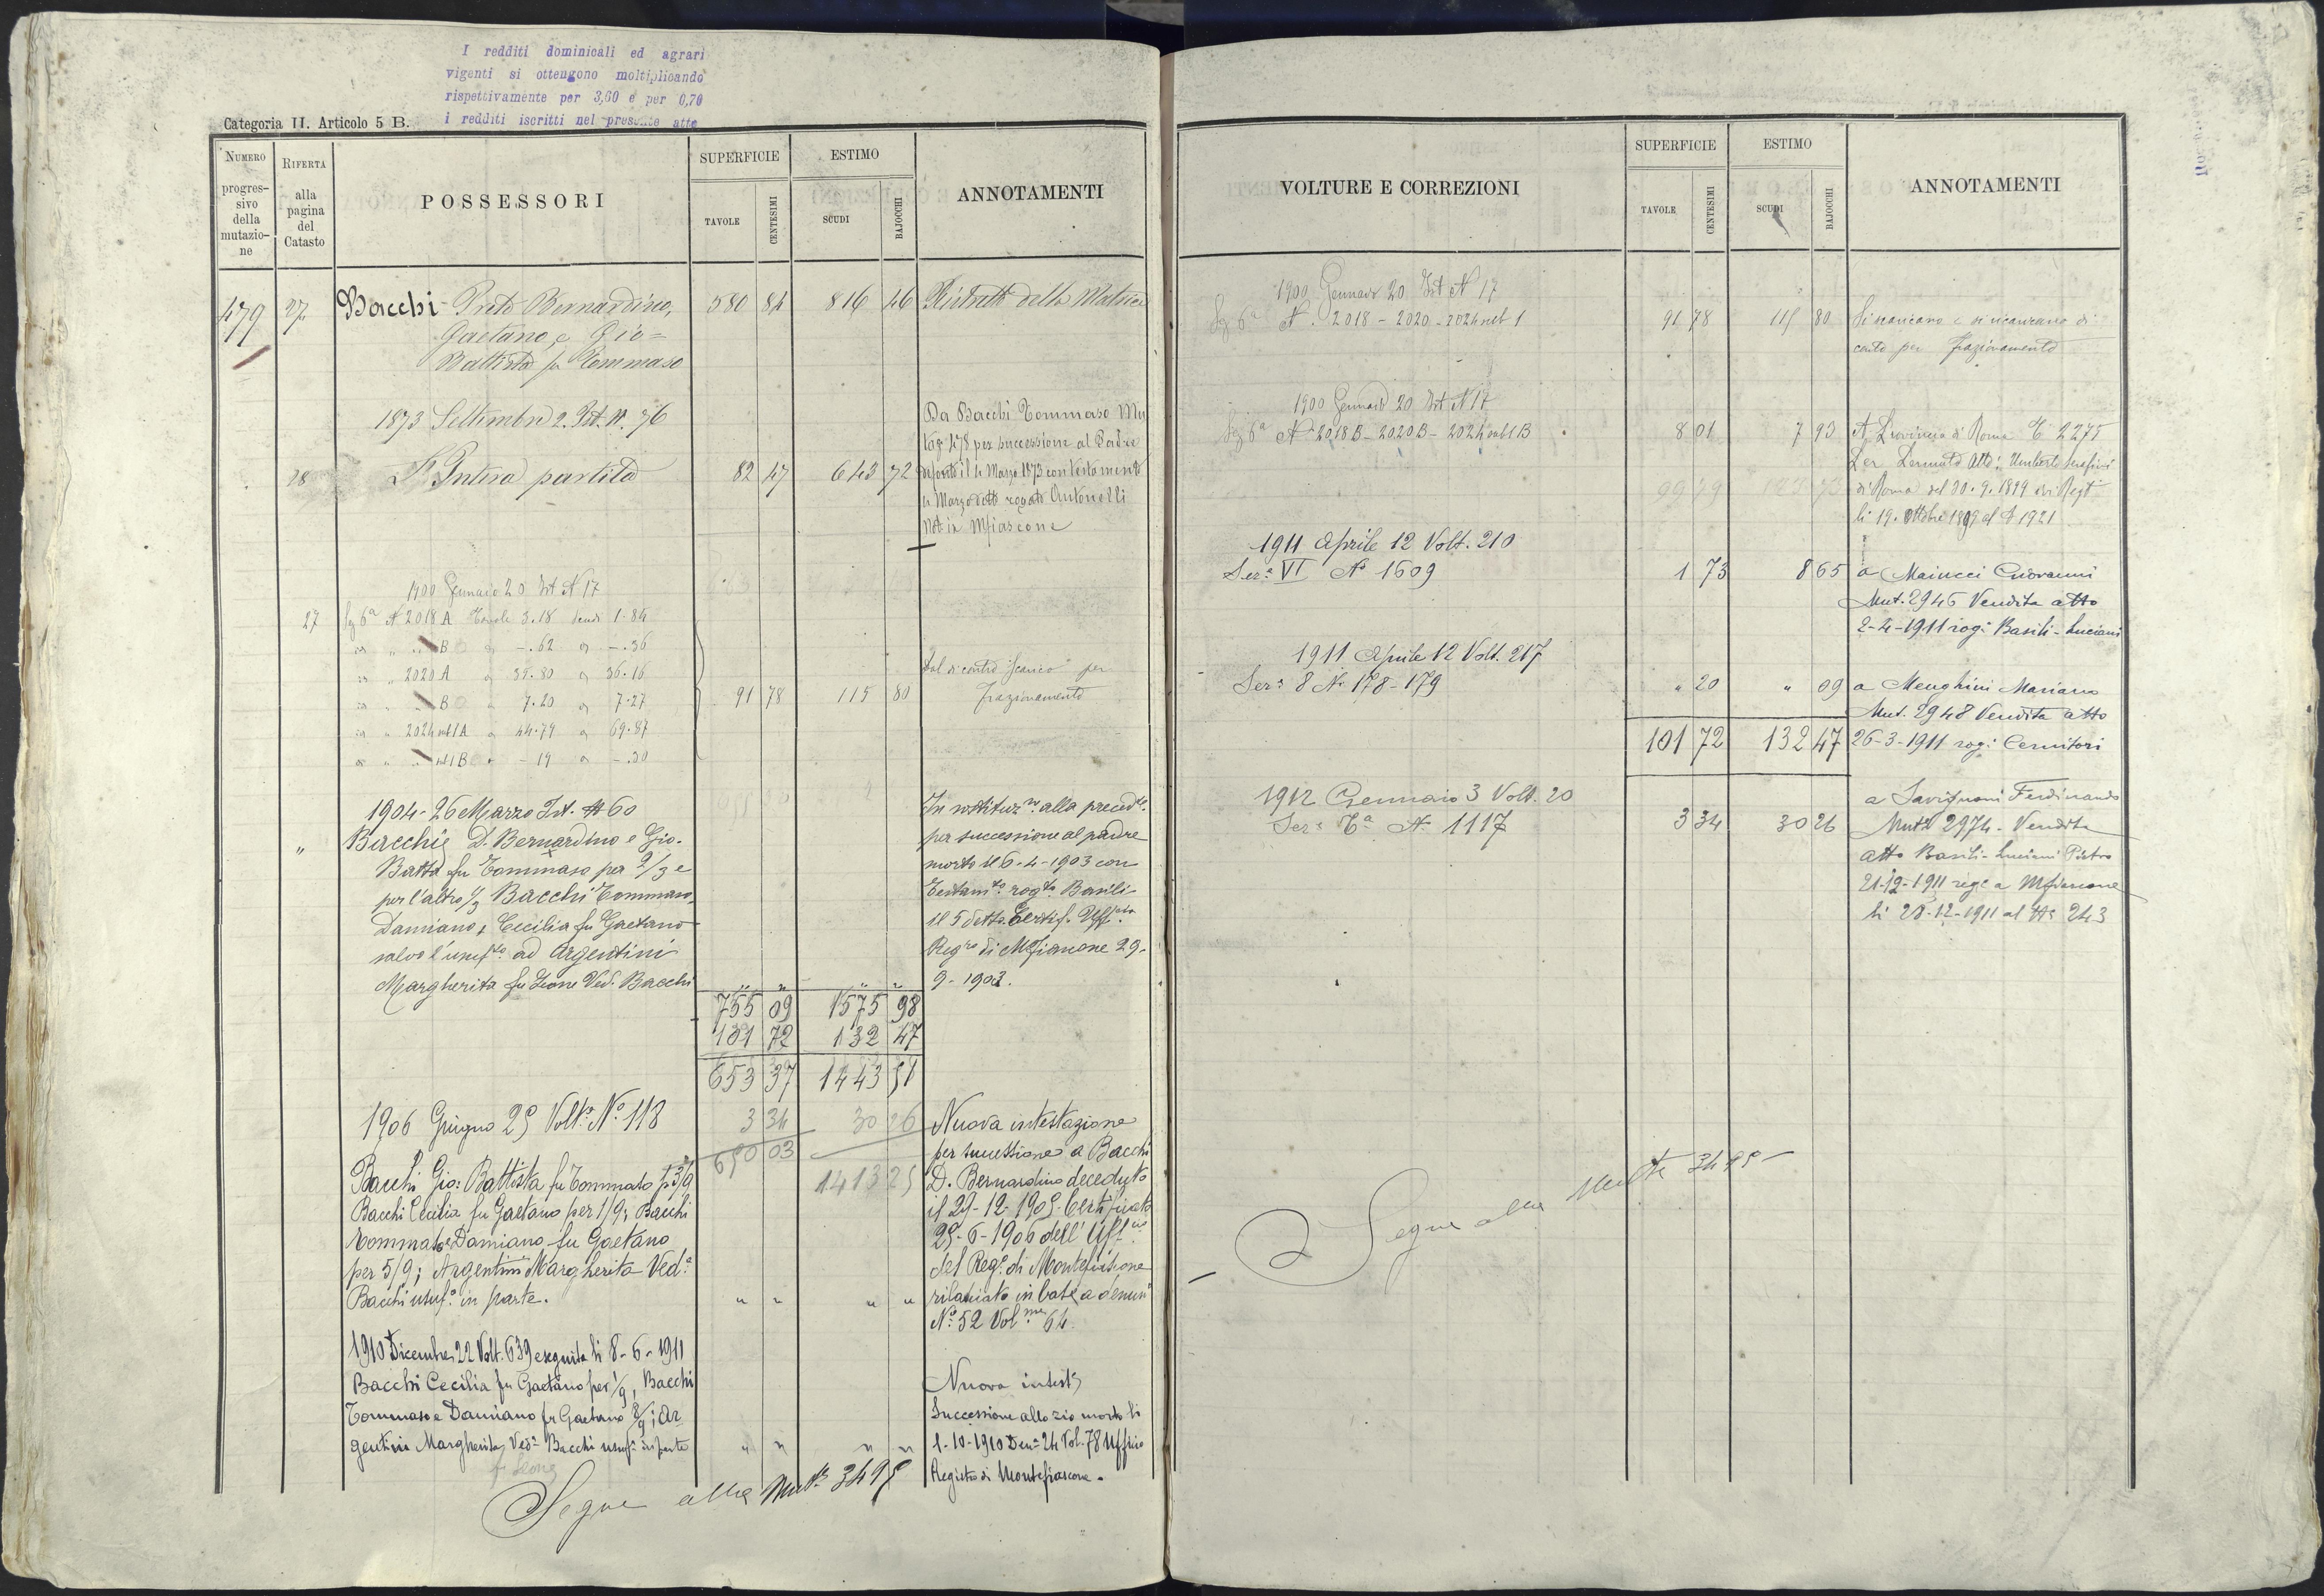 I redditi dominicali ed agrari
vigenti si ottengono moltiplicando
rispettivamente per 3,60 e per 0,70
i redditi iscritti nel presente atto
Categoria II. Articolo 5 B.
NUMERO progressivo della mutazione
RIFERTA alla pagina del Catasto
POSSESSORI
SUPERFICIE
TAVOLE
CENTESIMI
ESTIMO
SCUDI
BAJOCCHI
ANNOTAMENTI
479 27 Bacchi Preto Bernardino, 580 84 816 46 Ristretto della Matrice
Gaetano, e Gio=
Battista fu Tommaso
1873 Settembre 2. Ist. N. 76
28 L'Intera partita 82 47 643 72
Da Bacchi Tommaso Mu
taz 478 per successione al Padre
defonto il 4 Marzo 1873 con testamento
4 Marzo detto rogato Antonelli
Not in Mfiascone
1900 Gennaio 20 Ist N 17
27 Sez 6a N 2018 A Tavole 3.18 scudi 1.84
" " " B " -.62 " -.36
" " 2020 A " 35.80 " 36.16
" " " B " 7.20 " 7.27
" " 2024 sub 1A " 44.79 " 69.87
" " " sub 1B " -19 " -.30
91 78 115 80
Dal dicontro "scarico" per
frazionamento
1904 - 26 Marzo Ist. N 60
" Bacchi D. Bernardino e Gio.
Batta fu Tommaso per 2/3 e
per l'altro 1/3 Bacchi Tommaso,
Damiano, e Cecilia fu Gaetano
salvo l'usuf.to ad Argentini
Margherita fu Leone Ved. Bacchi
" " " "
In sostituz.ne alla preced.te
per successione al padre
morto il 6-4-1903 con
testam.to rog.to Basili
il 5 detto. Certif. Uff.cio
Reg.ro di Mfiascone 29-
9-1903.
755 09 1575 98
101 72 132 47
653 37 1443 51
3 34 30 26
650 03 1413 25
1906 Giugno 25 Volt.a No. 118
Bacchi Gio: Battista fu Tommaso p 3/9
Bacchi Cecilia fu Gaetano per 1/9; Bacchi
Tommaso e Damiano fu Gaetano
per 5/9; Argentini Margherita Ved.a
Bacchi usuf.a in parte.
" " " "
Nuova intestazione
per successione a Bacchi
D. Bernardino deceduto
il 29-12-1905. Certificato
25-6-1906 dell'Uff.cio
del Reg.o di Montefiascone
rilasciato in base a denun
No. 52 Vol.me 64.
1910 Dicembre 22 Volt. 639 eseguita li 8-6-1911
Bacchi Cecilia fu Gaetano per 1/9, Bacchi
Tommaso e Damiano fu Gaetano 8/9; Ar
gentini Margherita Ved.a Bacchi usuf.a in parte
fu Leone
" " " "
Nuova intest.
Successione allo zio morto li
1-10-1910 Den.a 24 Vol. 78 Ufficio
Registro di Montefiascone.
Segue alla Mut.a 3495
VOLTURE E CORREZIONI
SUPERFICIE
TAVOLE
CENTESIMI
ESTIMO
SCUDI
BAJOCCHI
ANNOTAMENTI
1900 Gennaio 20 Ist N 17
Sez 6a N. 2018 - 2020 - 2024 sub 1 91 78 115 80
Si scaricano e si ricaricano di
conto per frazionamento
1900 Gennaio 20 Ist N 17
Sez 6a N 2018 B - 2020 B - 2024 sub 1 B 8 01 7 93
A Provincia di Roma
Umberto Serafini
di Roma del 30.9.1899
li 19. Ottobre 1899 al N 1921
99 79 123 73
1911 Aprile 12 Volt. 210
Sez.a VI No 1609 1 73 8 65
a Maincci Giovanni
Mut. 2946 Vendita atto
2-4-1911 rog: Basili-Luciani
1911 Aprile 12 Volt. 217
Sez.a 8 No 178-179 " 20 " 09
a Menghini Mariano
Mut. 2948 Vendita atto
26-3-1911 rog: Cernitori
101 72 132 47
1912 Gennaio 3 Volt. 20
Sez.a 6.a N 1117 3 34 30 26
a Savignoni Ferdinando
Mut.a 2974 - Vendita
atto Basili-Luciani Pietro
21-12-1911 reg.o a Mfiascone
li 28-12-1911 al No 243
Segue alla Mut.a 3495